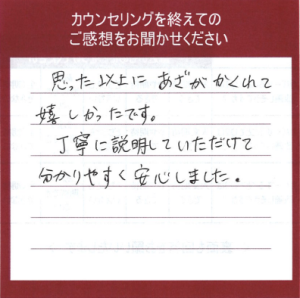 カウンセリングを終えての
ご感想をお聞かせください
思った以上に あざが かくれて
嬉しかったです。
丁寧に説明していただけて
分かりやすく 安心しました。